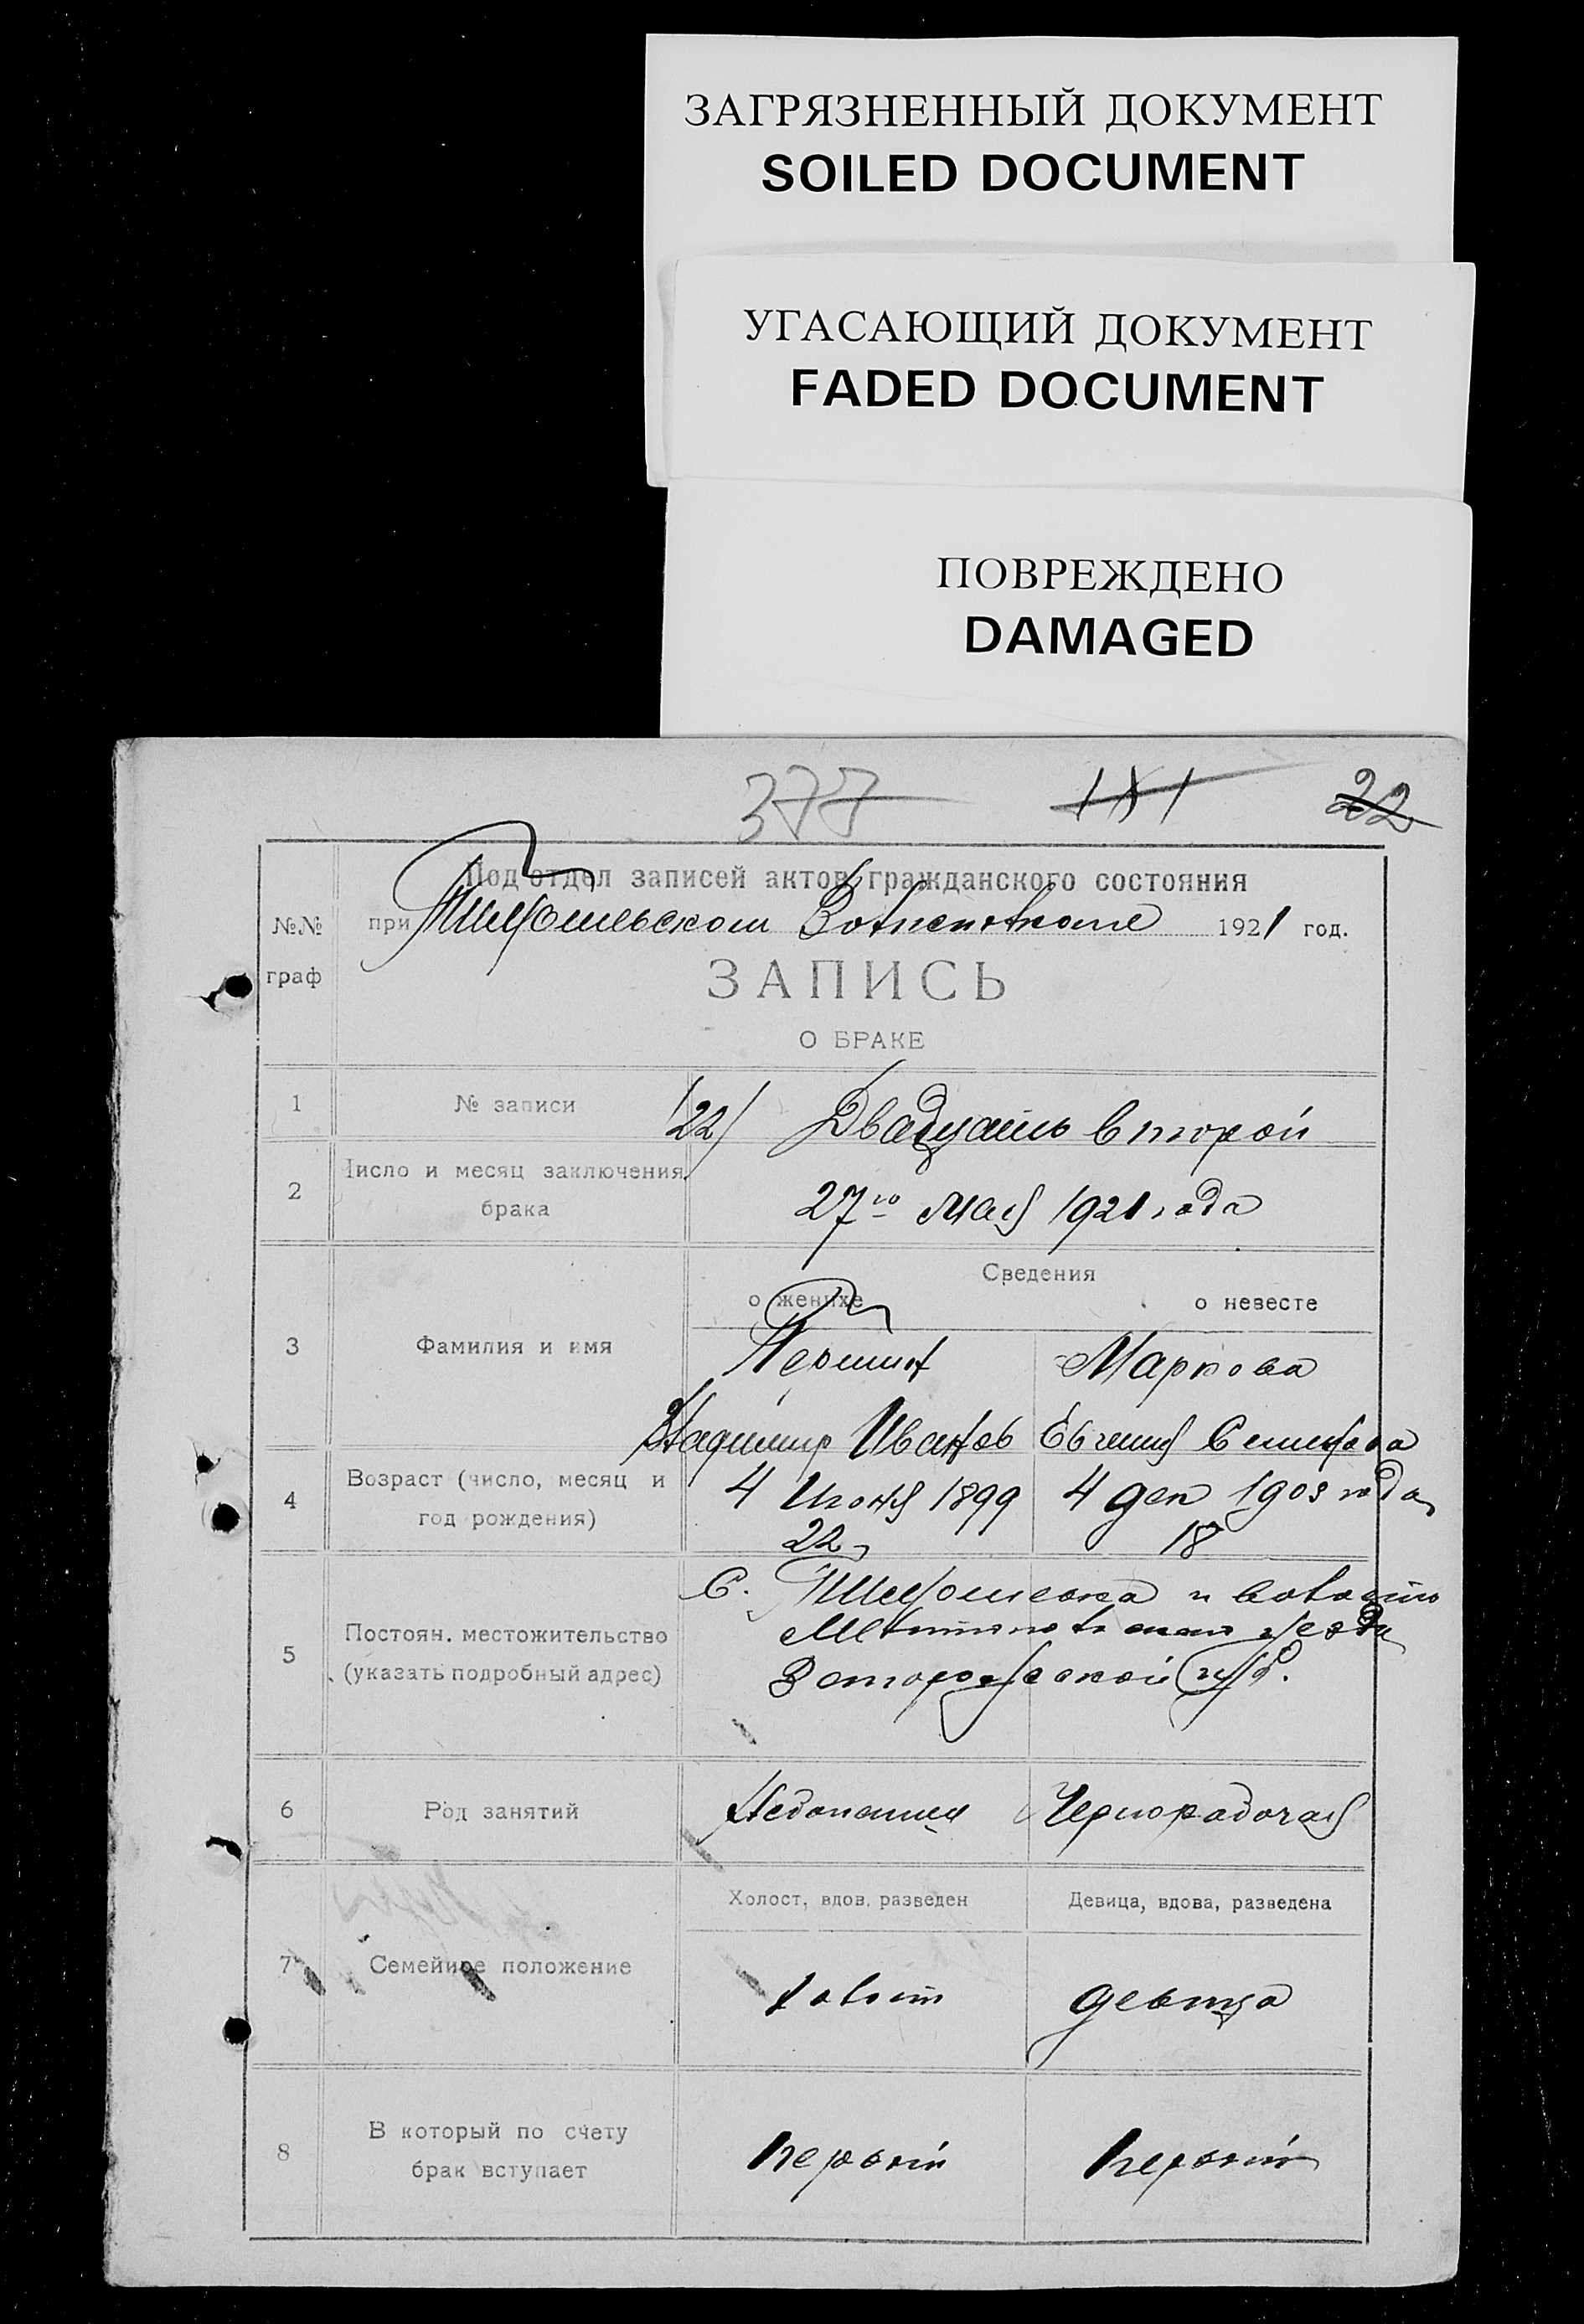 ЗАГРЯЗНЕННЫЙ ДОКУМЕНТ
SOILED DOCUMENT
УГАСАЮЩИЙ ДОКУМЕНТ
FADED DOCUMENT
ПОВРЕЖДЕНО
DAMAGED
377 181 22
Под'отдел записей актов гражданского состояния
№№ граф
при Волисполкоме 1921 год.
ЗАПИСЬ
О БРАКЕ
1 № записи /22/ Двадцать второй
2 Число и месяц заключения брака
27го Мая 1921 года
Сведения
о женихе о невесте
3 Фамилия и имя
Першин Маркова
Владимир Иванов Евгения Семенова
4 Возраст (число, месяц и год рождения)
4 Июня 1899 4 дек 1903 года
22 18
5 Постоян. местожительство (указать подробный адрес)
С. и волость
уезда
губ.
6 Род занятий Чернорабочая
Холост, вдов, разведен Девица, вдова, разведена
7 Семейное положение
холост девица
8 В который по счету брак вступает
первый первый